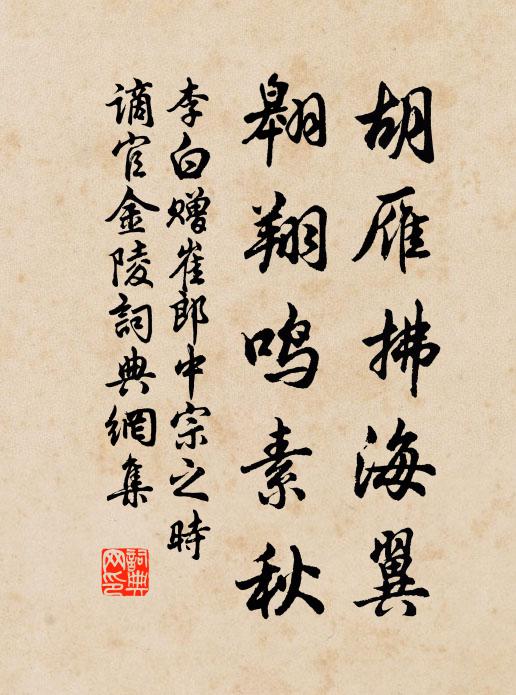 胡雁拂海翼
翱翔鸣素秋
李白赠崔郎中宗之時
谪官金陵詞典網集
詞典网印